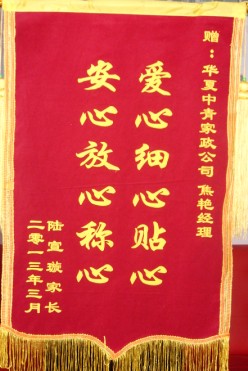 赠：华夏中青家政公司 焦艳经理
爱心细心贴心
安心放心称心
陆宜璇家长
二零一三年三月